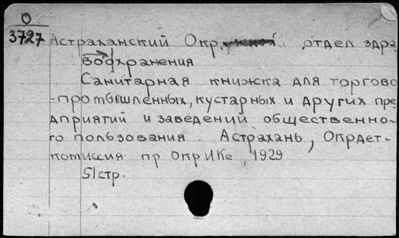 0
3727
Астраханский Окр. отдел здра
воохранения
Санитарная книжка для торгово
-промышленных, кустарных и других пре
дприятий и заведений общественно-
го пользования. Астрахань, Окрдет-
комиссия пр ОкрИКе, 1929
51стр.